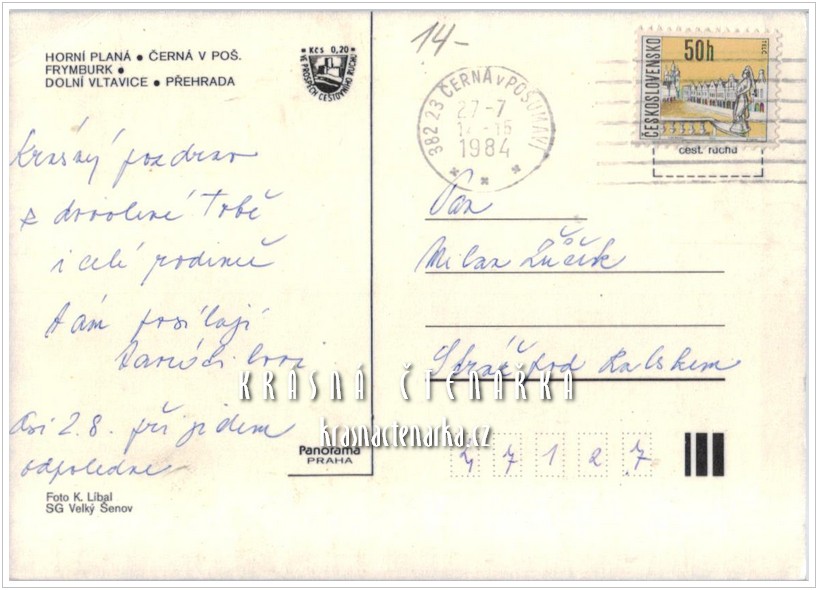 HORNÍ PLANÁ • ČERNÁ V POŠ.
FRYMBURK •
DOLNÍ VLTAVICE • PŘEHRADA
• Kčs 0,20 •
VE PROSPĚCH CESTOVNÍHO RUCHU
14-
382 23 ČERNÁ v POŠUMAVÍ
27-7
1984
ČESKOSLOVENSKO
50h
TELČ
cest. ruchu
Krásný pozdrav
z dovolené Tobě
i celé rodině
Vám posílají
Asi 2.8. přijedem
odpoledne
Pan
Milan
Stráž pod Ralskem
KRÁSNÁ ČTENÁŘKA
krasnactenarka.cz
Panorama
PRAHA
4 7 1 2 7
Foto K. Libal
SG Velký Šenov